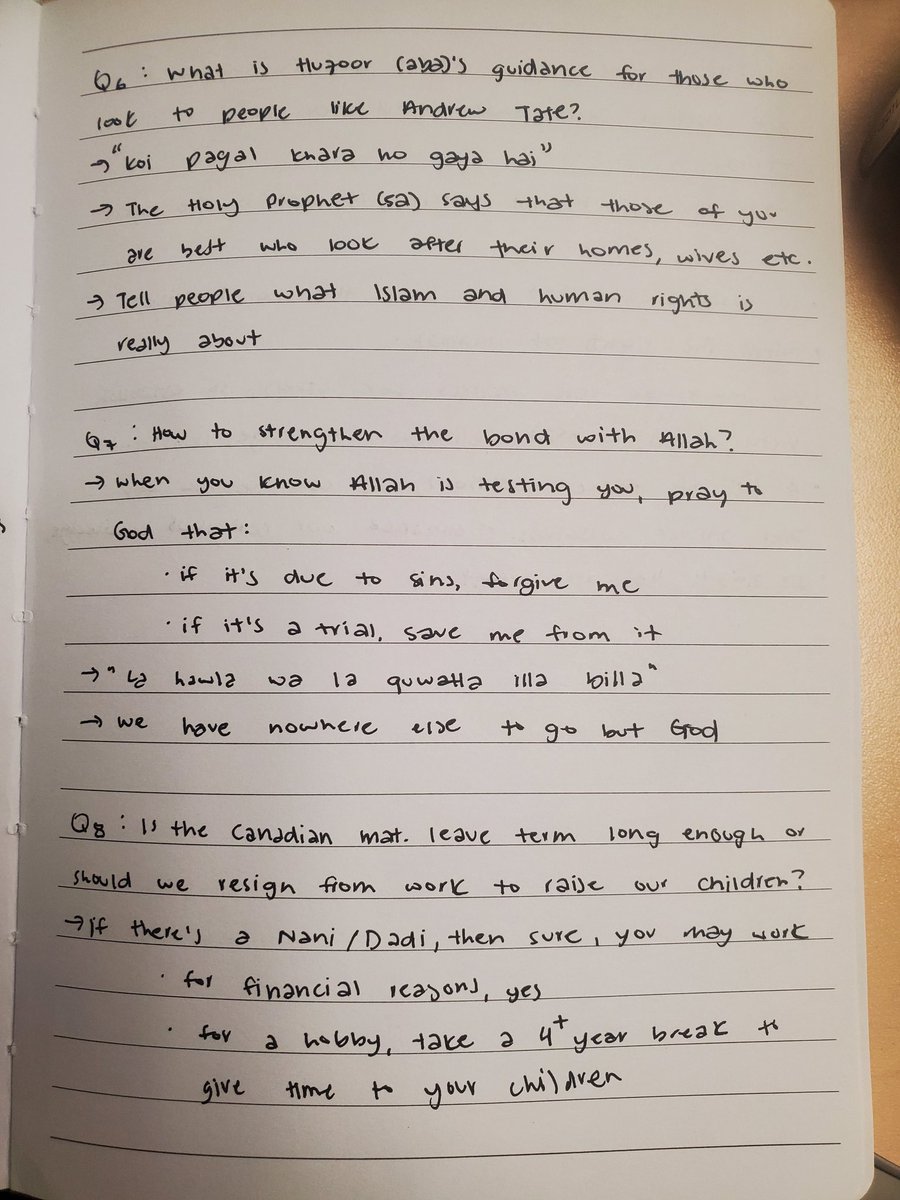 Q6 : What is Huzoor (aba)'s guidance for those who
look to people like Andrew Tate?
→ "Koi pagal khara ho gaya hai"
→ The Holy Prophet (sa) says that those of you
are best who look after their homes, wives etc.
→ Tell people what Islam and human rights is
really about
Q7 : How to strengthen the bond with Allah?
→ when you know Allah is testing you, pray to
God that:
· if it's due to sins, forgive me
· if it's a trial, save me from it
→ "La hawla wa la quwatta illa billa"
→ we have nowhere else to go but God
Q8 : Is the Canadian mat. leave term long enough or
should we resign from work to raise our children?
→ if there's a Nani/Dadi, then sure, you may work
· for financial reasons, yes
· for a hobby, take a 4+ year break to
give time to your children